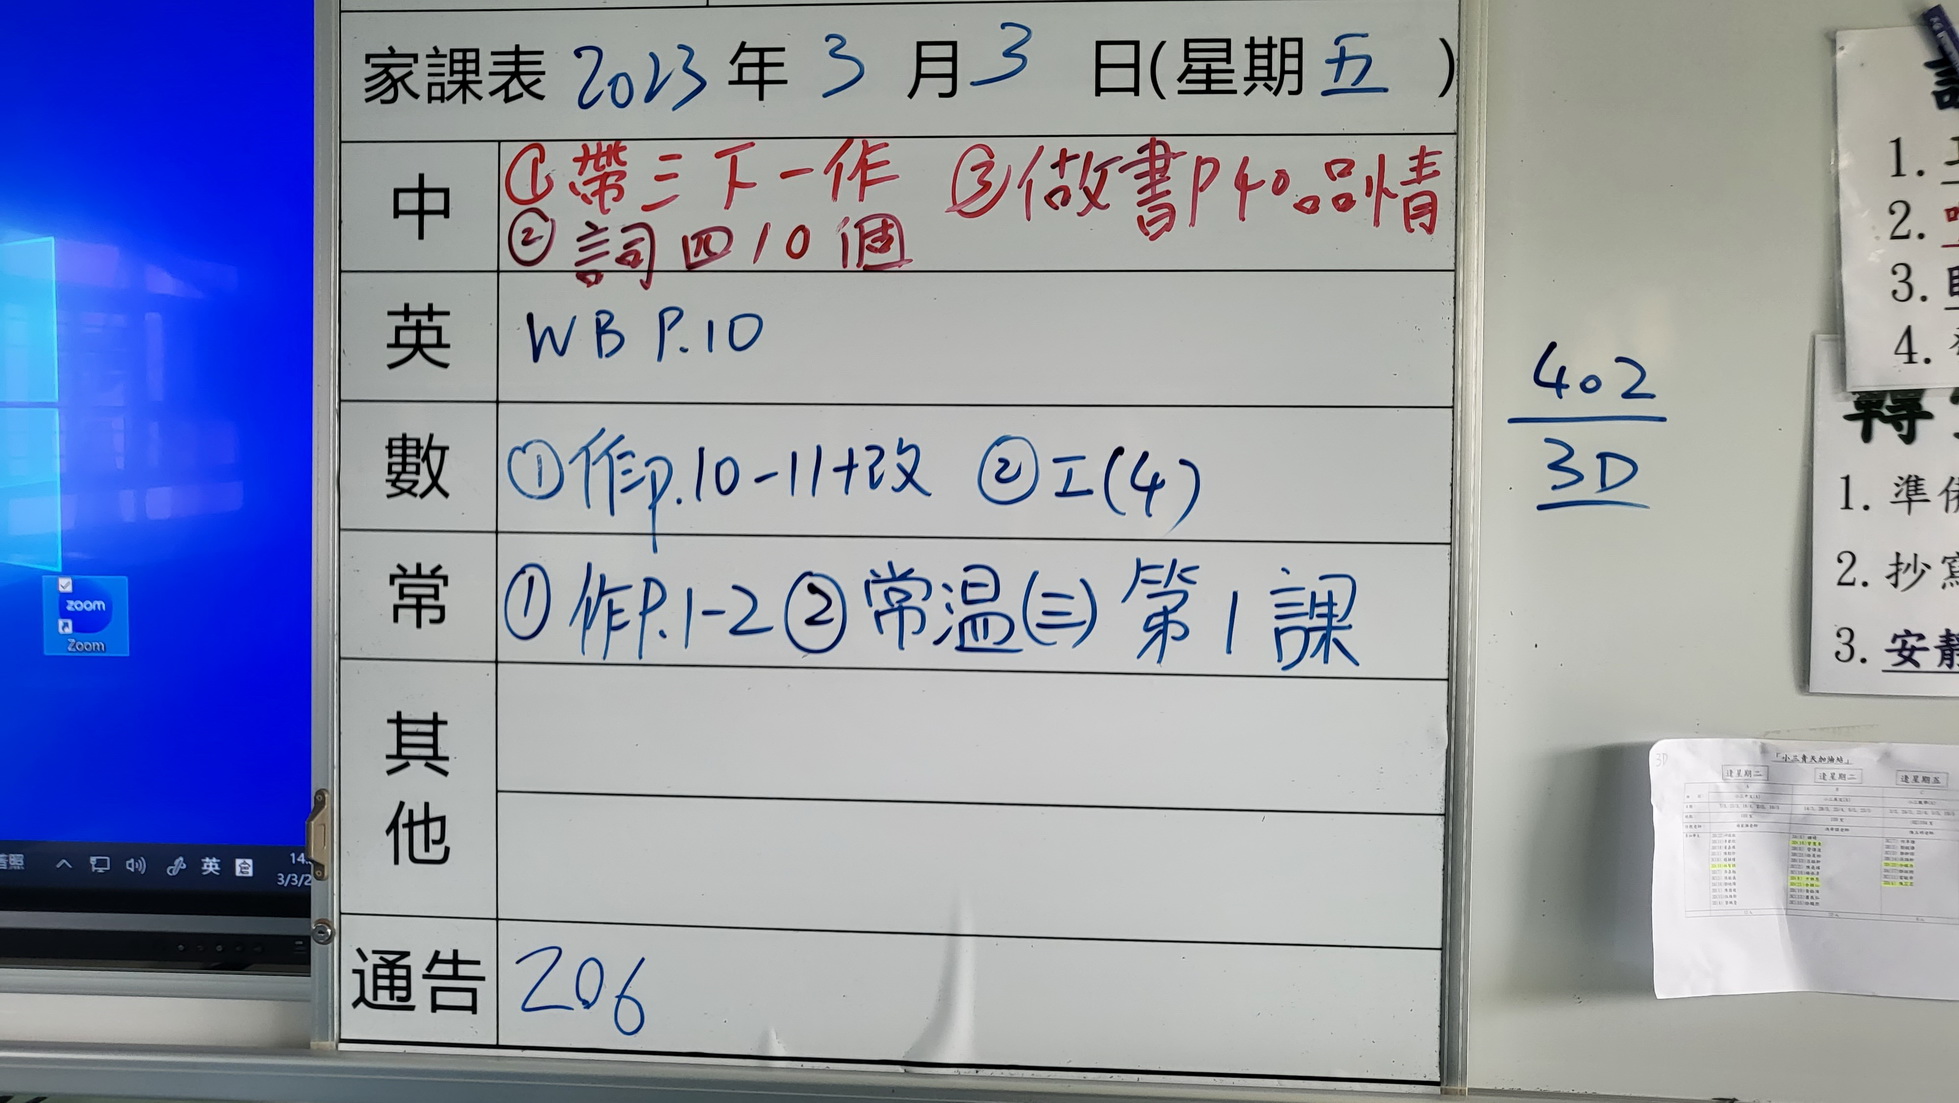 家課表 2023 年 3 月 3 日(星期 五 )
中
① 帶三下一作 ③ 做書P40品情
② 詞四10個
英
WB P.10
數
① 作p.10-11+改 ② 工(4)
常
① 作P.1-2 ② 常温(三) 第1課
其他
通告
206
402
3D
zoom
Zoom
英
14
3/3/2
1.
2.
3.
4.
轉
1. 準
2. 抄
3. 安靜
3D
逢星期二
逢星期二
逢星期五